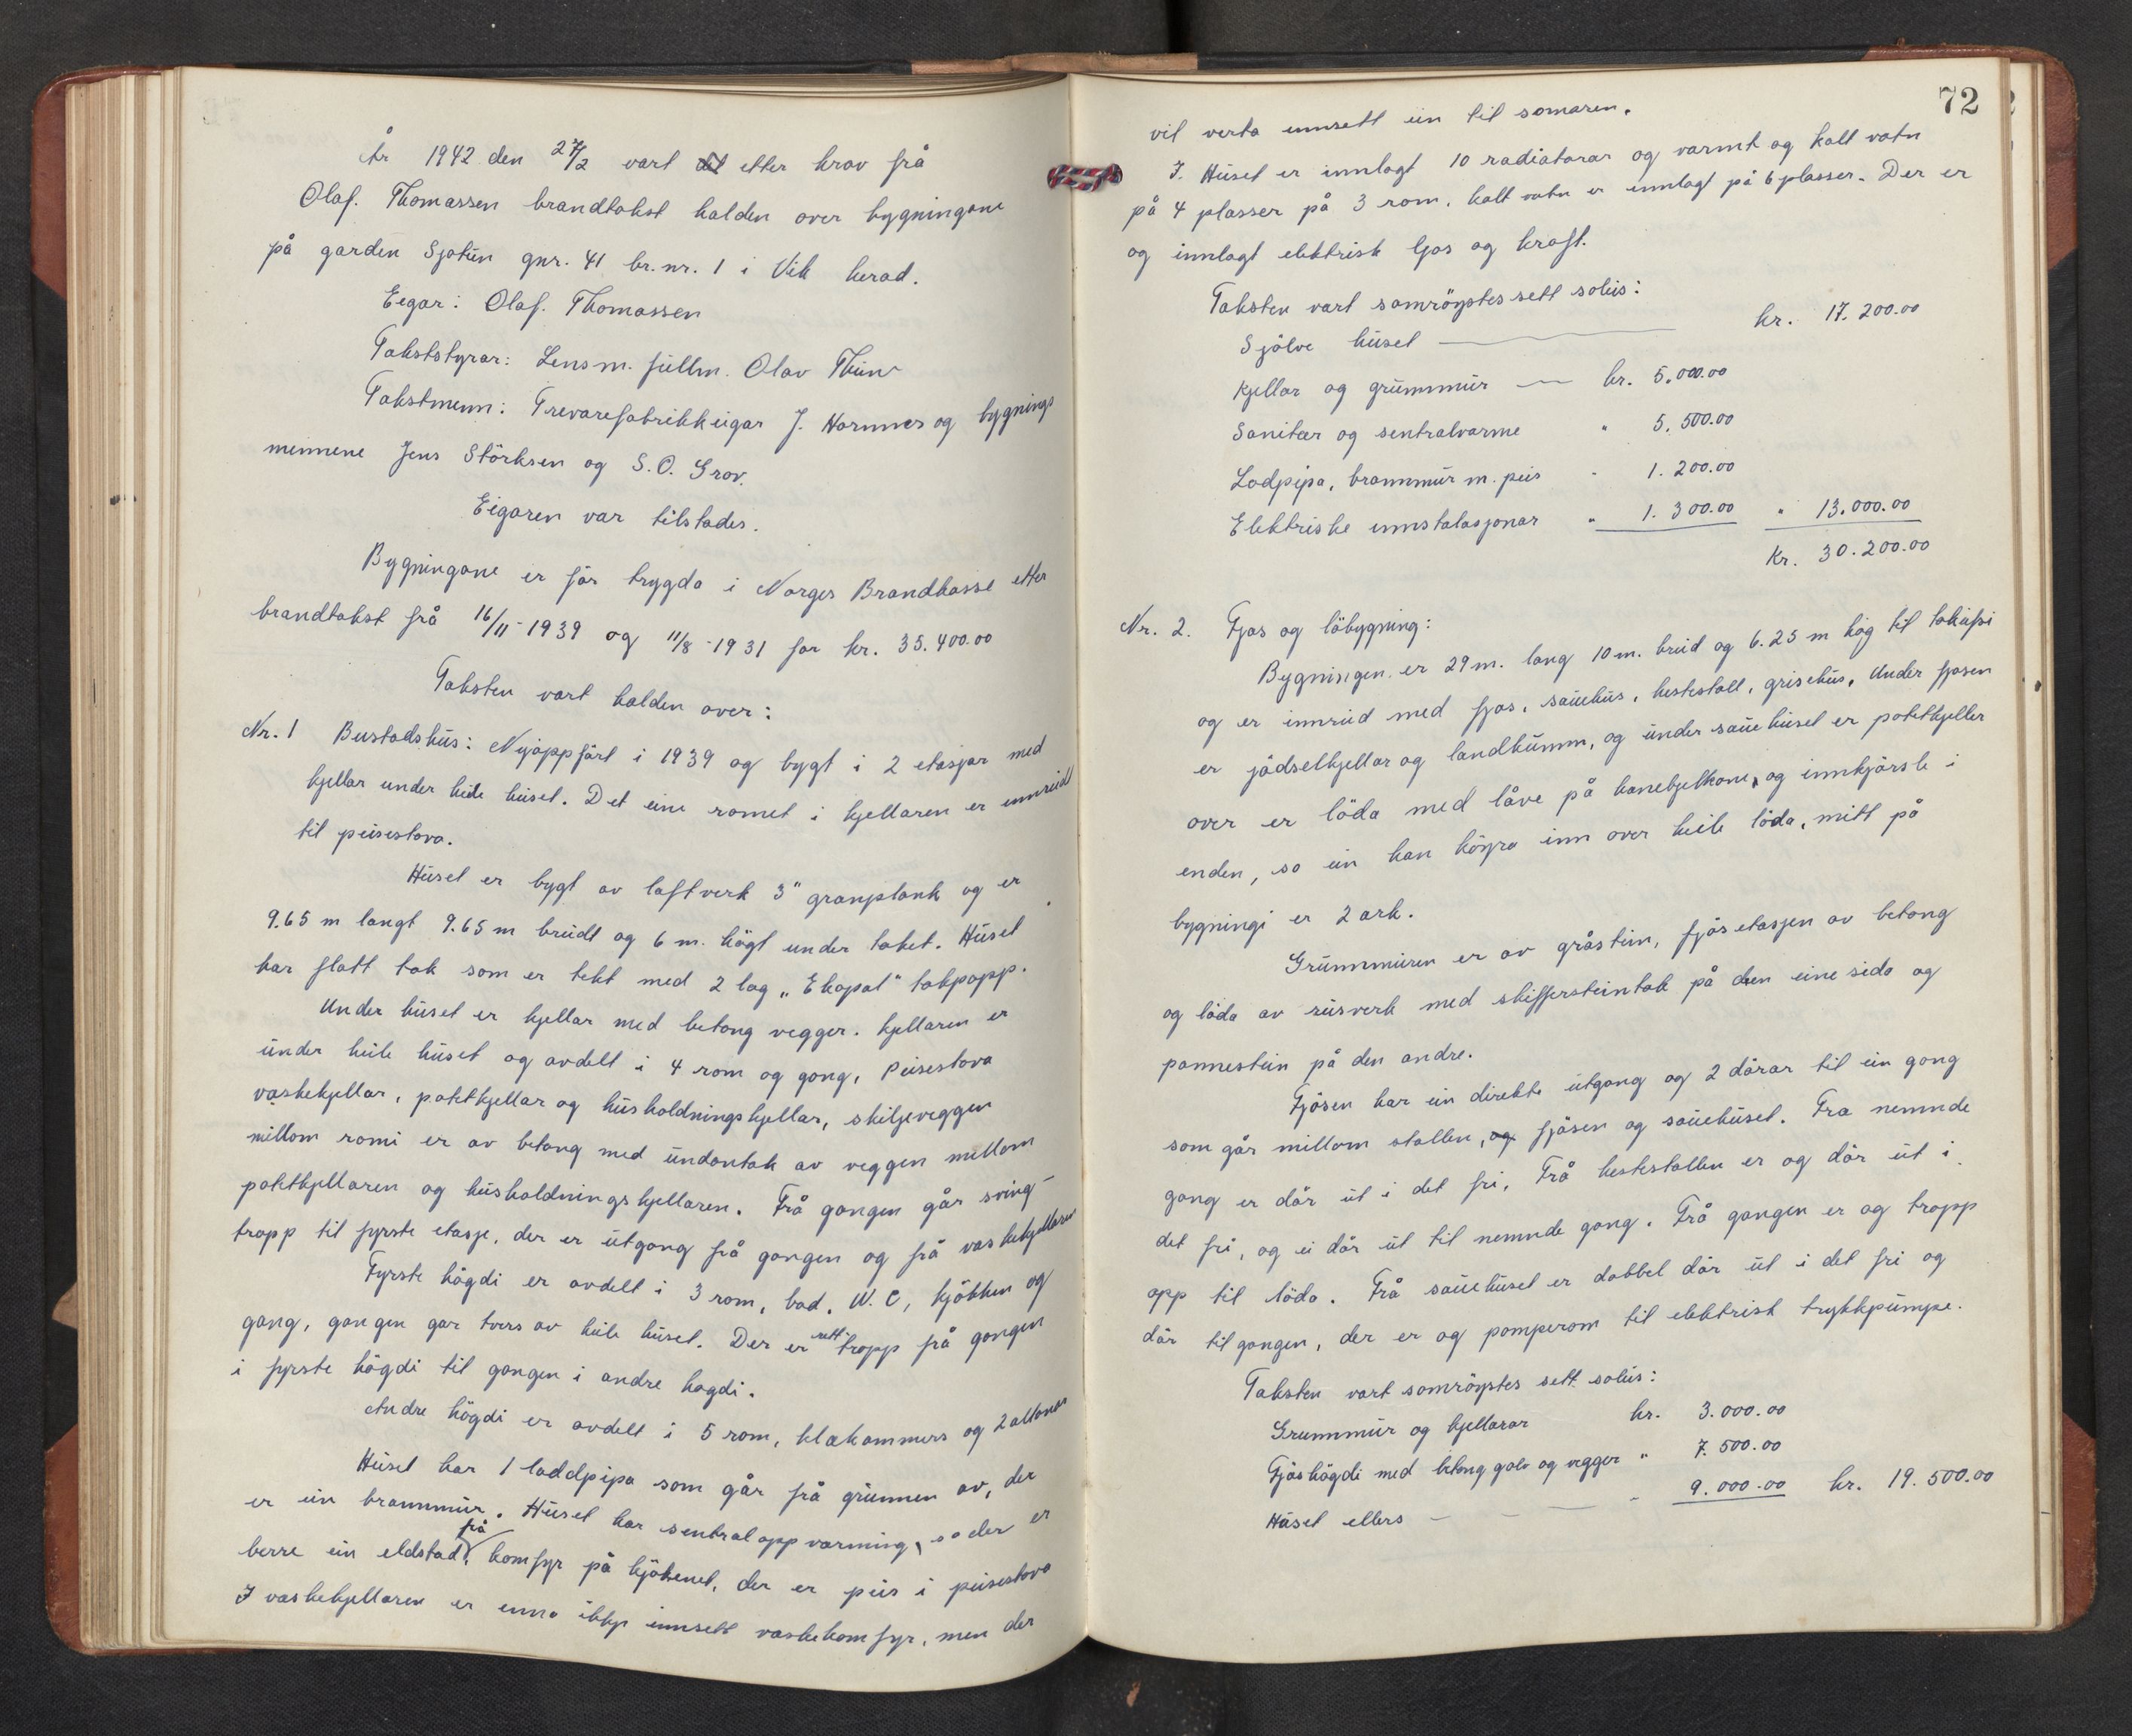 År 1942 den 27/2 vart etter krav frå
Olaf. Thomassen brandtakst halden over bygningane
på garden Sjotun gnr. 41 br.nr. 1 i Vik herad.
Eigar: Olaf. Thomassen
Takststyrar: Lensm. fullm. Olav Thun
Takstmenn: Trevarefabrikkeigar J. Hornnes og bygnings
mennene Jens Störksen og S. O. Grov.
Eigaren var tilstades.
Bygningane er för trygda i Norges Brandkasse etter
brandtakst frå 16/11-1939 og 11/8-1931 for kr. 35.400.00
Taksten vart halden over:
Nr. 1 Bustadshus: Nyoppfört i 1939 og bygt i 2 etasjar med
kjellar under heile huset. Det eine romet i kjellaren er innreidd
til peisestova.
Huset er bygt av laftverk 3" granplank og er
9.65 m langt 9.65 m breidt og 6 m. högt under taket. Huset
har flatt tak som er tekt med 2 lag „Ekopal" takpapp.
Under huset er kjellar med betong vegger. Kjellaren er
under heile huset og avdelt i 4 rom og gong, Peisestova
vaskekjellar, potetkjellar og husholdningskjellar, skiljeveggen
millom romi er av betong med undantak av veggen millom
potetkjellaren og husholdningskjellaren. Frå gangen går sving-
trapp til fyrste etasje, der er utgang frå gangen og frå vaskekjellaren
Fyrste högdi er avdelt i 3 rom, bad. W. C, kjökken og
gang, gangen gar tvers av heile huset. Der er rett trapp frå gangen
i fyrste högdi til gangen i andre hogdi.
Andre högdi er avdelt i 5 rom, klækammers og 2 altaner
Huset har 1 loddpipa som går frå grunnen av, der
er ein brannmur. Huset har sentraloppvarming, so der er
berre ein eldstad, frå komfyr på kjökenet, der er peis i peisestova
I vaskekjellaren er enno ikkje innsett vaskekomfyr, men der
72
vil verta innsett ein til somaren.
I. Huset er innlagt 10 radiatorar og varmt og kalt vatn
på 4 plasser på 3 rom, kalt vatn er innlagt på 6 plasser. Der er
og innlagt elektrisk ljos og kraft.
Taksten vart samröystes sett soleis:
Sjölve huset kr. 17.200.00
Kjellar og grunnmur kr. 5.000.00
Sanitær og sentralvarme " 5.500.00
Lodpipa, brannmur m. peis " 1.200.00
Elektriske innstalasjonar " 1.300.00 " 13.000.00
Kr. 30.200.00
Nr. 2. Fjos og löbygning:
Bygningen er 29 m. lang 10 m. breid og 6.25 m høg til takufsi
og er innreid med fjos, sauehus, hestestall, grisehus. Under fjosen
er jödselkjellar og landkumm, og under sauehuset er potetkjeller
over er löda med låve på hanebjelkane, og innkjörsle i
enden, so ein kan köyra inn over heile löda, mitt på
bygningi er 2 ark.
Grunnmuren er av gråstein, fjösetasjen av betong
og löda av reisverk med skiffersteintak på den eine sida og
pannestein på den andre.
Fjösen har ein direkte utgang og 2 dörar til ein gong
som går millom stallen, og fjösen og sauehuset. Fra nemnde
gong er dör ut i det fri, Frå hestestallen er og dör ut i
det fri, og ei dör ut til nemnde gong. Frå gangen er og trapp
opp til löda. Frå sauehuset er dobbel dör ut i det fri og
dör til gangen, der er og pomperom til elektrisk trykkpumpe.
Taksten vart samröystes sett soleis:
Grunnmur og kjellarar kr. 3.000.00
Fjöshögdi med betong golv og vegger " 7.500.00
Huset ellers " 9.000.00 kr. 19.500.00